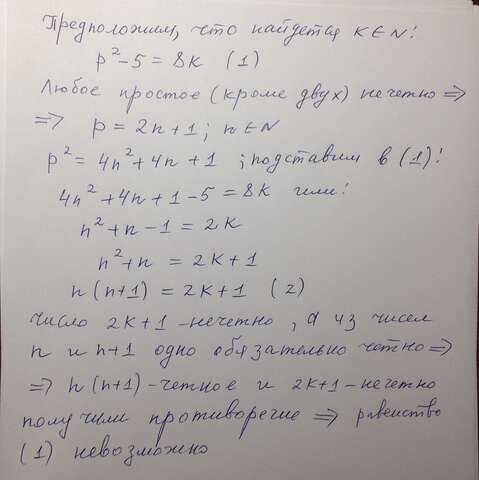 Предположим, что найдется k∈N:
p²-5=8k (1)
Любое простое (кроме двух) нечетно ⇒
⇒ p=2n+1; n∈N
p²=4n²+4n+1; подставим в (1):
4n²+4n+1-5=8k или:
n²+n-1=2k
n²+n=2k+1
n(n+1)=2k+1 (2)
Число 2k+1-нечетно, а из чисел
n и n+1 одно обязательно четно ⇒
⇒ n(n+1)-четное и 2k+1-нечетно
получили противоречие ⇒ равенство
(1) невозможно